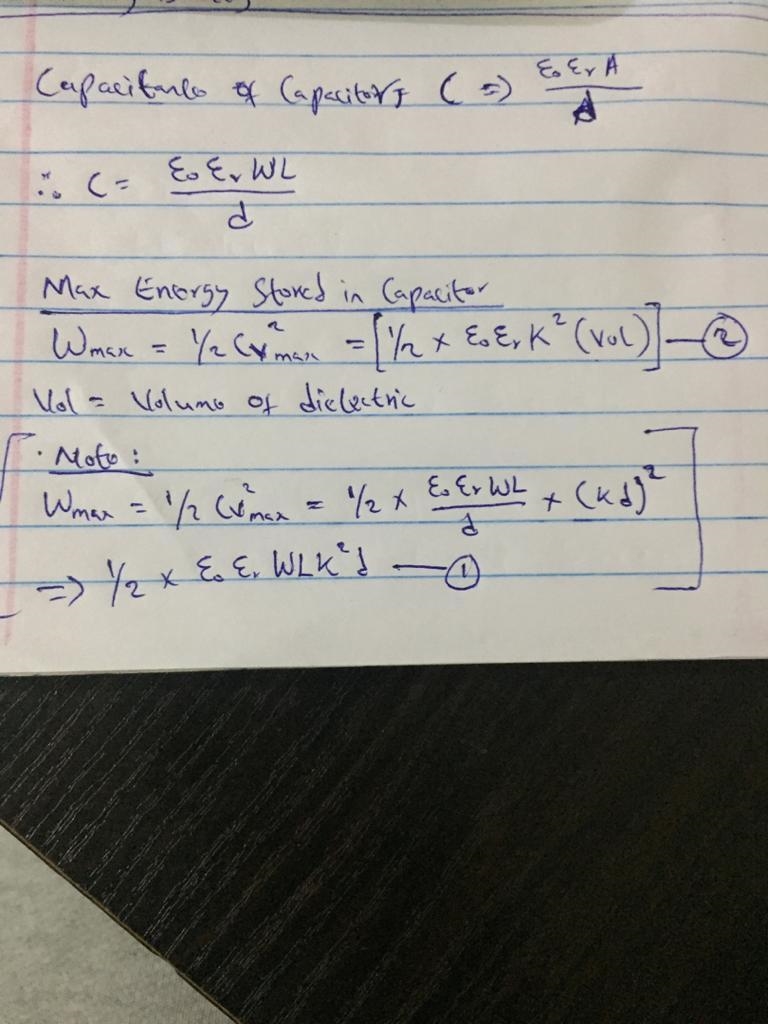 Capacitance of Capacitor, C => ε₀ εᵣ A / d
∴ C = ε₀ εᵣ WL / d
Max Energy Stored in Capacitor
Wmax = 1/2 CV²max = [1/2 × ε₀ εᵣ K² (Vol)] — ②
Vol = Volume of dielectric
· Note:
Wmax = 1/2 CV²max = 1/2 × ε₀ εᵣ WL / d × (Kd)²
=> 1/2 × ε₀ εᵣ WLK²d — ①